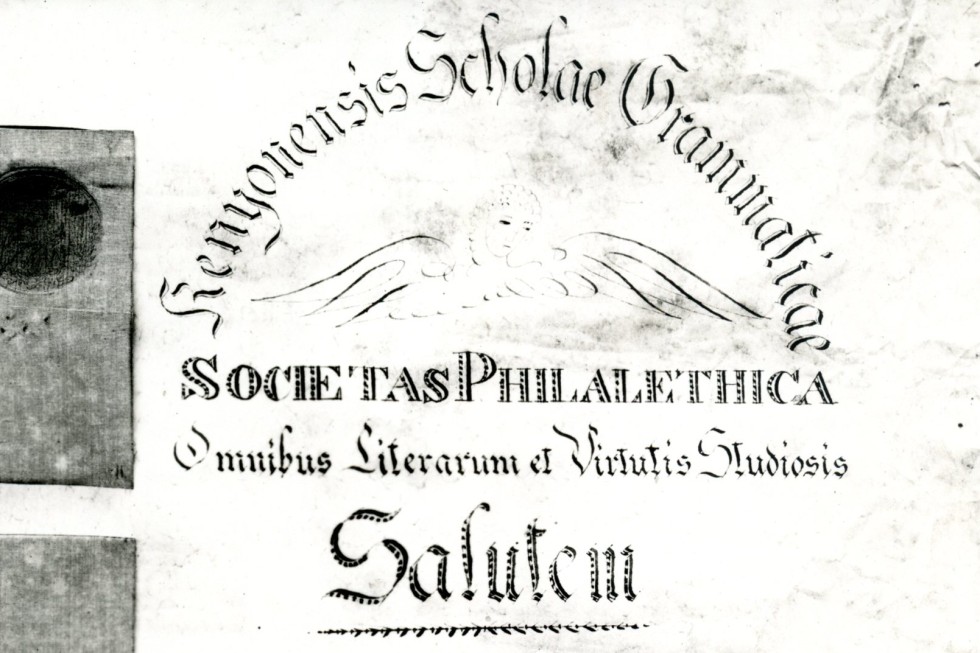 Kenyonensis Scholae Grammaticae
SOCIETAS PHILALETHICA
Omnibus Literarum et Virtutis Studiosis
Salutem